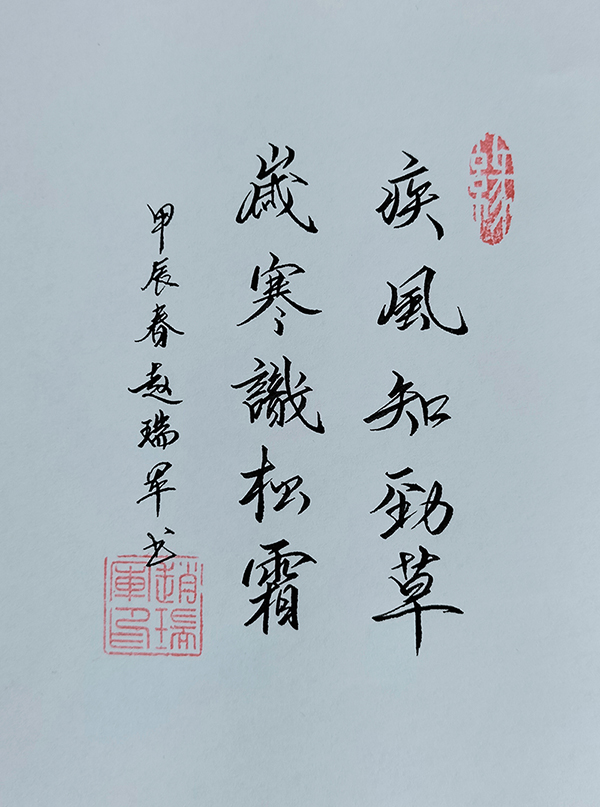 疾風知勁草
歲寒識松霜
甲辰春趙瑞军书
趙瑞軍印